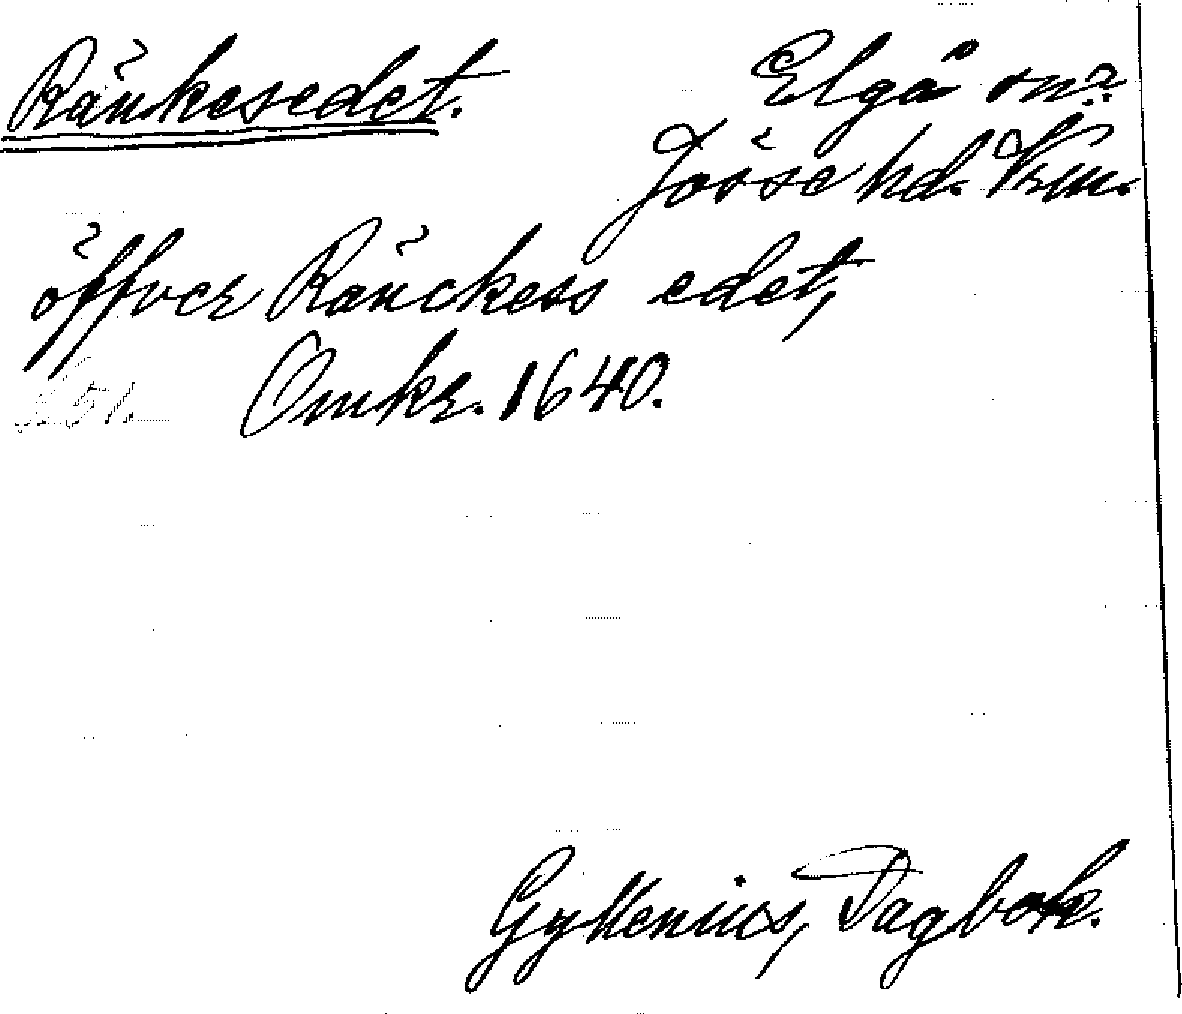 Ränkesedet. Elgå snr
Jösse hd. Vrm.
öffver Ränckess edet,
s. 51. Omkr. 1640.
Gyllenius, Dagbok.